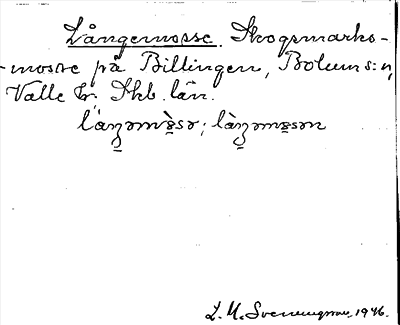 Långemosse. Skogsmarks-
-mosse på Billingen, Bolums:n,
Valle hd. Skb. län.
låŋəmòsə; làŋəmosən
L. M. Svenungsson. 1946.